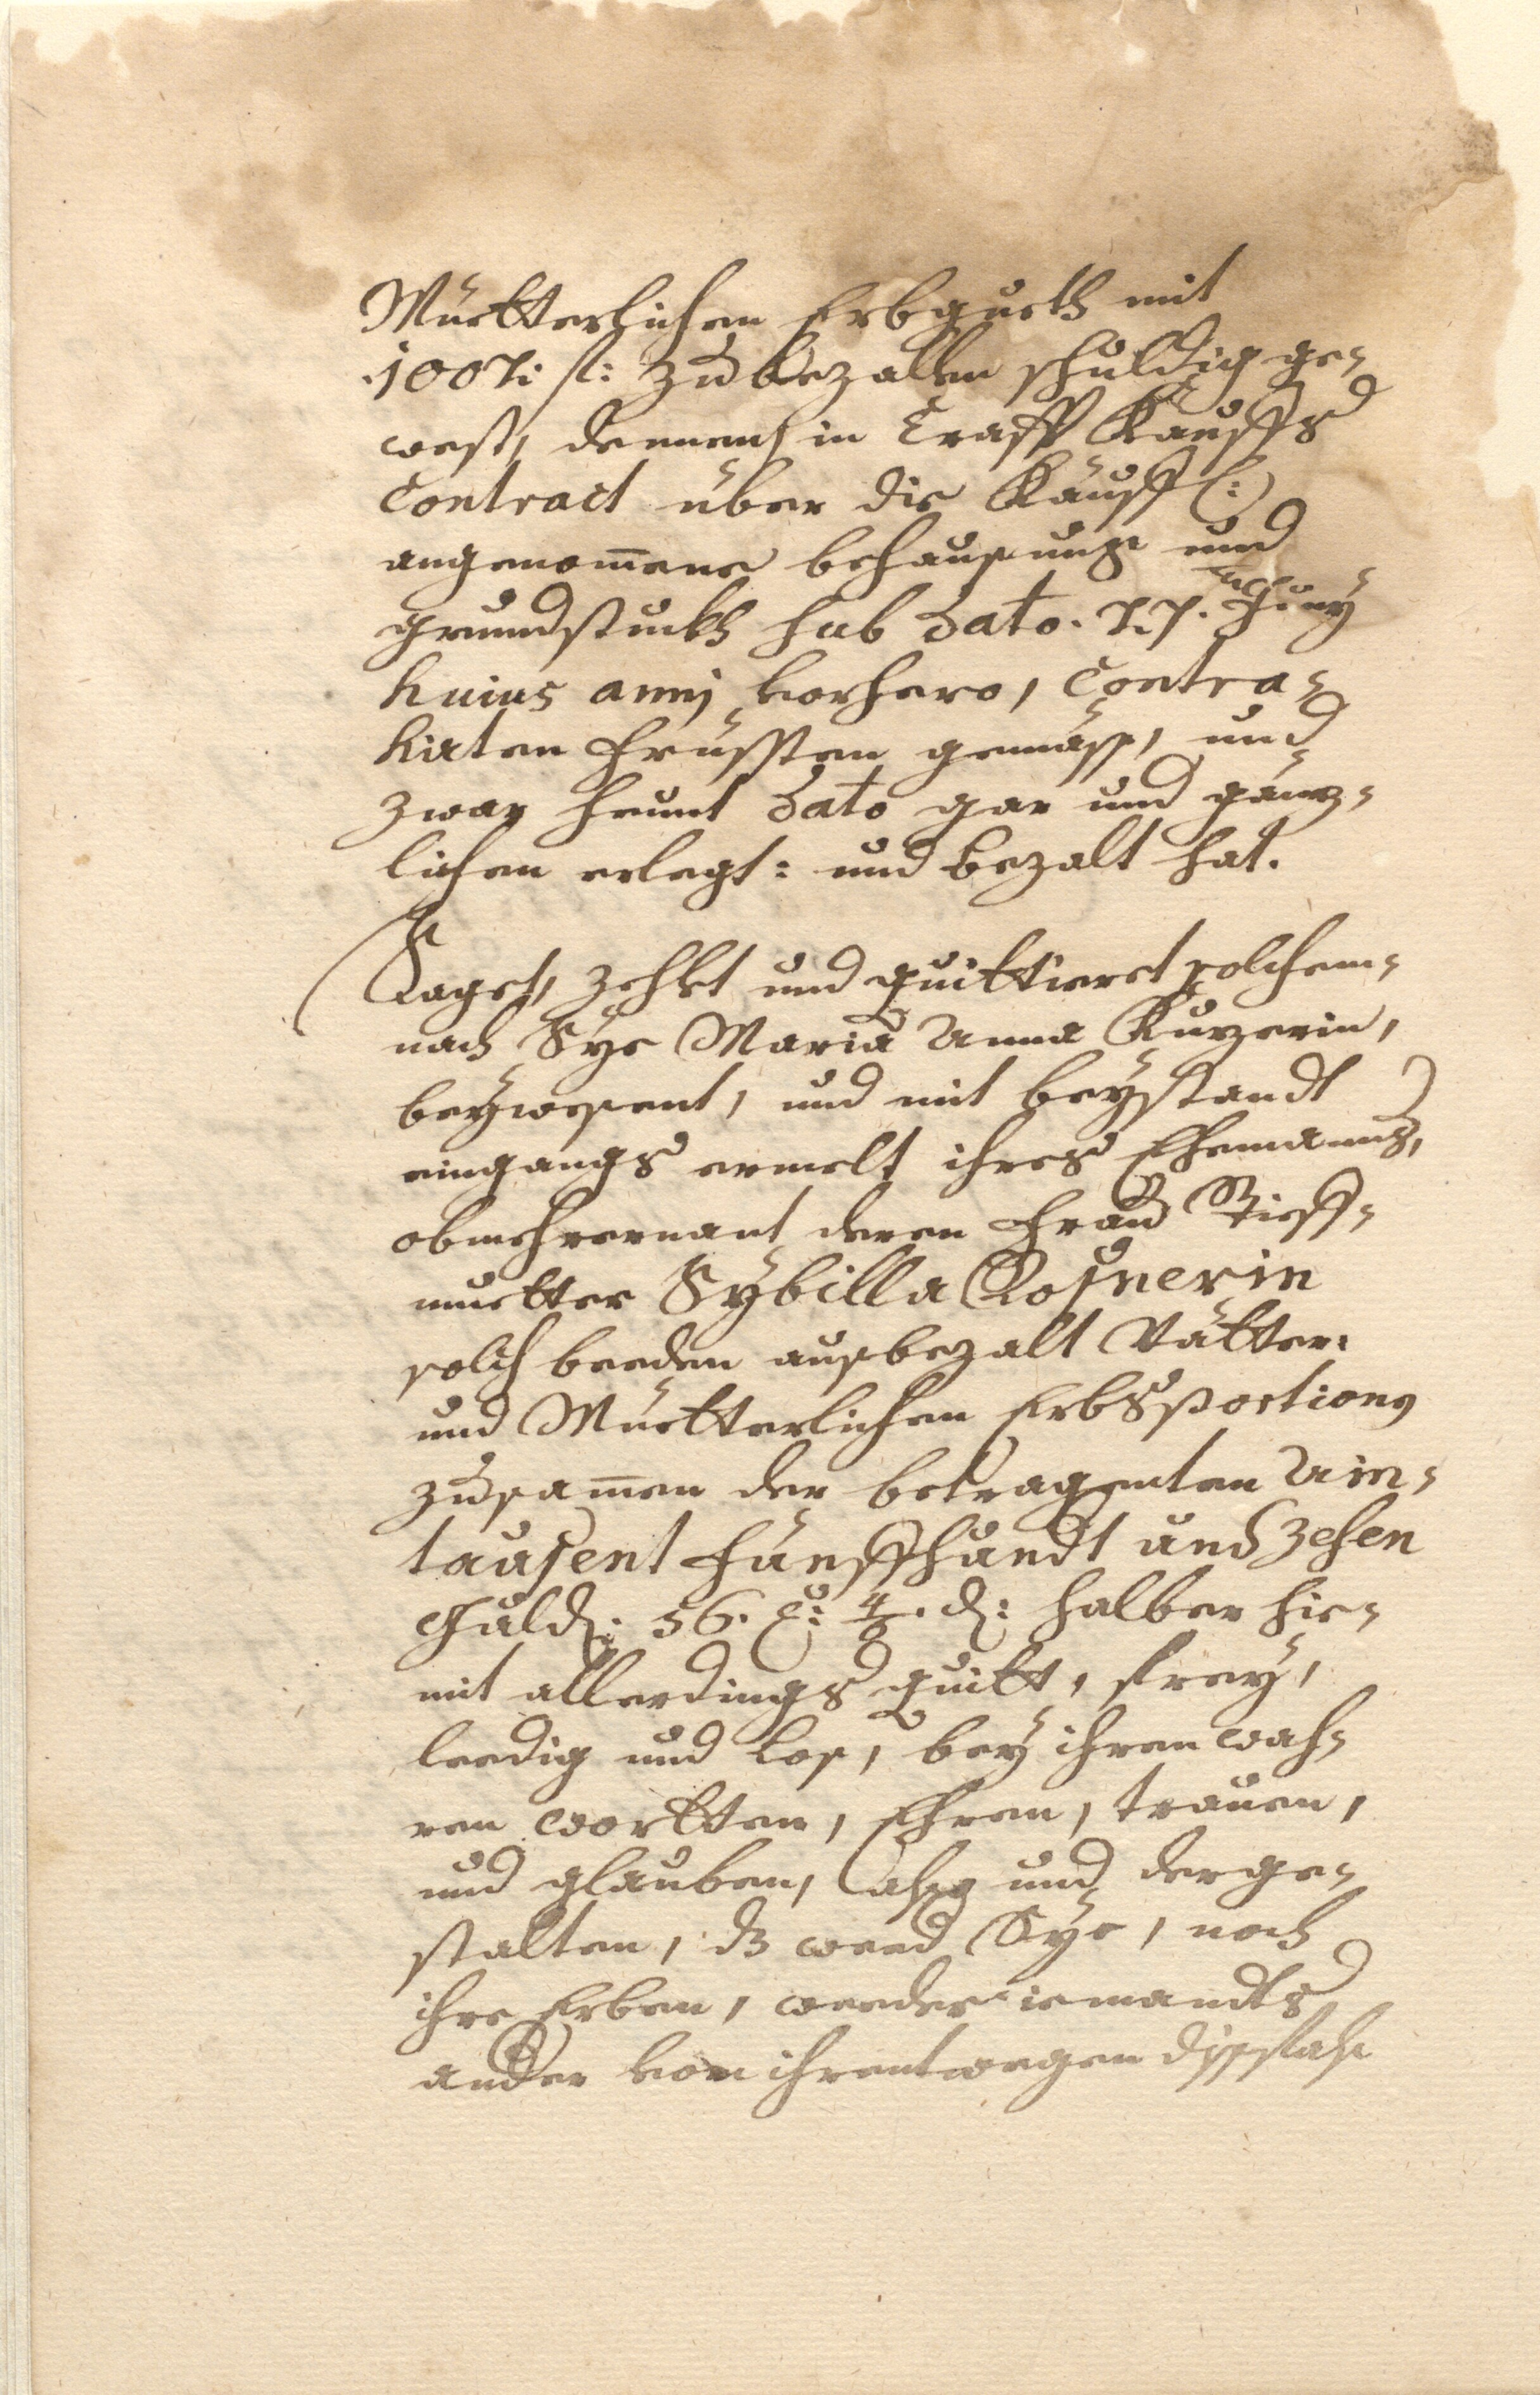 Müetterlichen Erbguets mit
1007: fl: zubezallen schuldig ge=
west, dennens in Crafft Kauffs
Contract über die Käuff(:)
angenom̄ene behausung und
grundstuckh sub Dato. 27. Juny
huius annj vorhero, Contra=
hirten Früsten gemäss, und
zwar heunt Dato gar und gänz=
lichen erlegt: und bezalt hat.
Saget, zehlt und quittieret solchem=
nach Sye Maria Anna Kurzerin,
beywesent, und mit beystandt
eingangs ermelt ihres Ehemanns,
obmehrernant deren Frau Stieff=
muetter Sybilla Rosnerin
solch beeden ausbezalt Vätter:
und Müetterlichen Erbsportions
zusam̄en der betragenten Ain=
tausent Fünffhundt und zehen
Guld: 56. x: 4/8. d: halber hie=
mit allerdings quitt, frey,
leedig und los, bey ihren wah=
ren wortten, Ehren, trauen,
und glauben, also und derge=
stalten, dz weed Sye, noch
ihre Erben, weeder iemandts
ander von ihrentwegen dissfahls